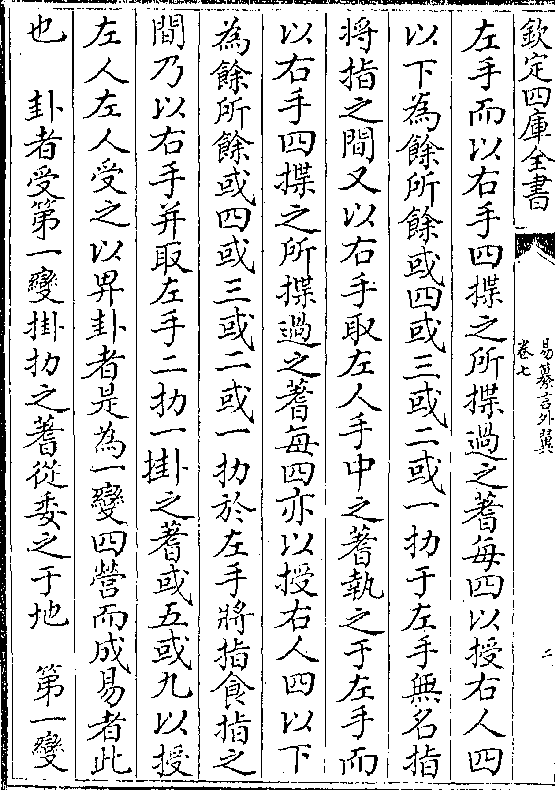 欽定四庫全書
易纂言外翼
卷七
二
左手而以右手四揲之所揲過之蓍每四以授右人四
以下為餘所餘或四或三或二或一扐于左手無名指
將指之間又以右手取左人手中之蓍執之于左手而
以右手四揲之所揲過之蓍每四亦以授右人四以下
為餘所餘或四或三或二或一扐於左手將指食指之
間乃以右手并取左手二扐一掛之蓍或五或九以授
左人左人受之以畀卦者是為一變四營而成易者此
也　卦者受第一變掛扐之蓍從委之于地　第一變